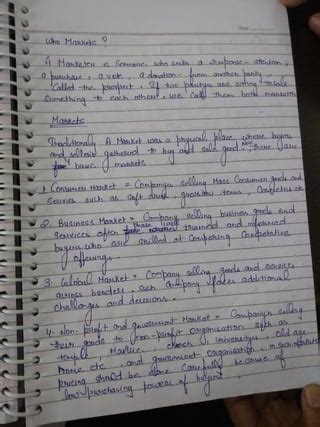 Who Markets ?
A Marketer is Someone who seeks a response - attention,
a purchase, a vote, a donation - from another party,
Called the prospect. If two parties are seeking to sell
something to each other, we call them both marketers
Markets
Traditionally A Market was a physical place where buyers
and sellers gathered to buy and sell good. Now, there are
basic markets
1 Consumers Market = Companys selling Mass Consumer goods and
Services such as soft drink,
2. Business Market = Company selling business goods and
Services often trained and informed
buyers who are skilled at Comparing Competative
offerings.
3. Global Market = Company selling goods and services
across borders. Such Company faces additional
challenges and decisions.
4. Non-Profit and government Market = Companys selling
their goods to non-profit organisation such as
temple, church, universitys, old age
Home etc. and government organisation.
pricing should be done Carefully because of
low purchasing power of buyers